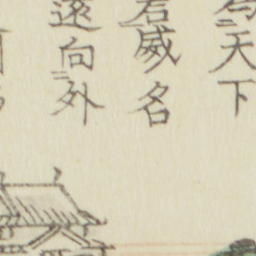 天下
君威名
遂向外